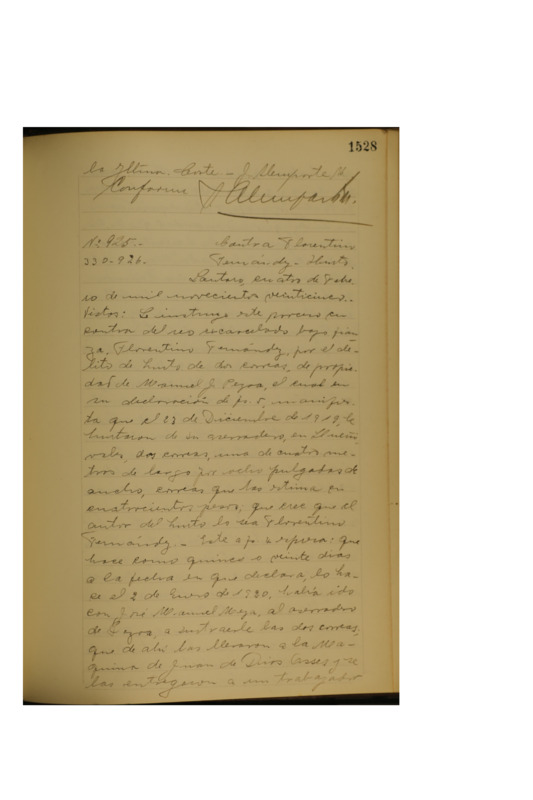 1528
la Iltma. Corte - J. Alemparte
Conforme
Nº 925.- Contra Florentino
330-926. Fernández - Hurto.
Lautaro, cuatro de Febre
ro de mil novecientos veinticinco.-
Vistos: Se instruye este proceso en
contra del reo excarcelado bajo fian
za, Florentino Fernández, por el de-
lito de hurto de dos correas, de propie-
dad de Manuel J. Peyoa, el cual en
su declaración de fs. 5, manifies-
ta que el 27 de Diciembre de 1919, le
hurtaron de su aserradero, en
dos correas, una de cuatro me-
tros de largo por ocho pulgadas de
ancho, correas que las estima en
cuatrocientos pesos; que cree que el
autor del hurto lo sea Florentino
Fernández.- Este a fs. expresa: que
hace como quince o veinte días
a la fecha en que declara, lo ha-
ce el 2 de Enero de 1920, había ido
con José Manuel Meza, al aserradero
de Peyoa, a sustraerle las dos correas,
que de ahí las llevaron a la Ma-
quina de Juan de Dios y se
las entregaron a un trabajador